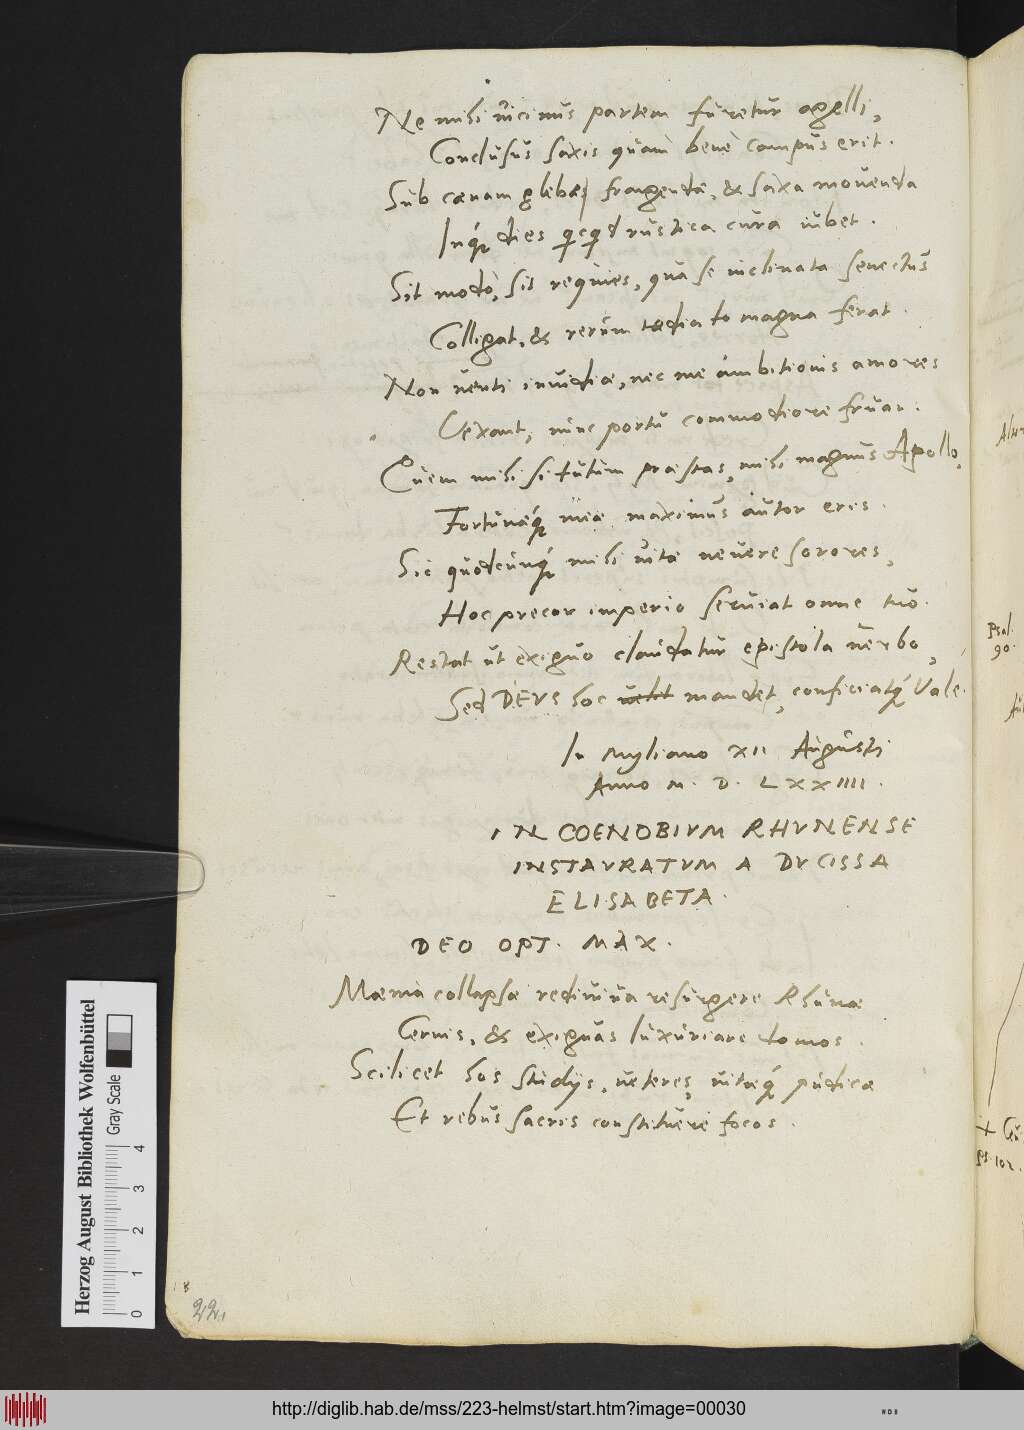 Ne mihi vicinus partem furetur agelli,
Conclusus saxis quàm benè campus erit.
Sub cœnam glebæ frangendæ, & saxa mouenda
Inq́ dies qcqd rustica cura iubet.
Sit modò, sit requies, qua se inclinata senectus
Colligat, & rerum tædia to magna ferat.
Non uenti inuidiæ, nec me ambitionis amores
Vexant, nunc portu commodiore fruar.
Quem mihi si tutum præstas, mihi magnus Apollo,
Fortunæq́ meæ maximus autor eris.
Sic quodcunq́ mihi uitæ neuere sorores,
Hoc precor imperio seruiat omne tuo.
Restat ut exiguo claudatur epistola uerbo,
Sed DEVS hoc uelit mandet, conficiatq́ Vale.
In Myliano XII Augusti
Anno M. D. LXXIIII.
IN COENOBIVM RHVNENSE
INSTAVRATVM A DVCISSA
ELISABETA.
DEO OPT. MAX.
Mœnia collapsæ rediuiua resurgere Rhunæ
Cernis, & exiguas luxuriare domos.
Scilicet hos studijs, ueteres, uitæq́ pudicæ
Et rebus sacris constituere focos.
22
Psal.
90.
Ps 102.
Herzog August Bibliothek Wolfenbüttel
Gray Scale
0 1 2 3 4
http://diglib.hab.de/mss/223-helmst/start.htm?image=00030